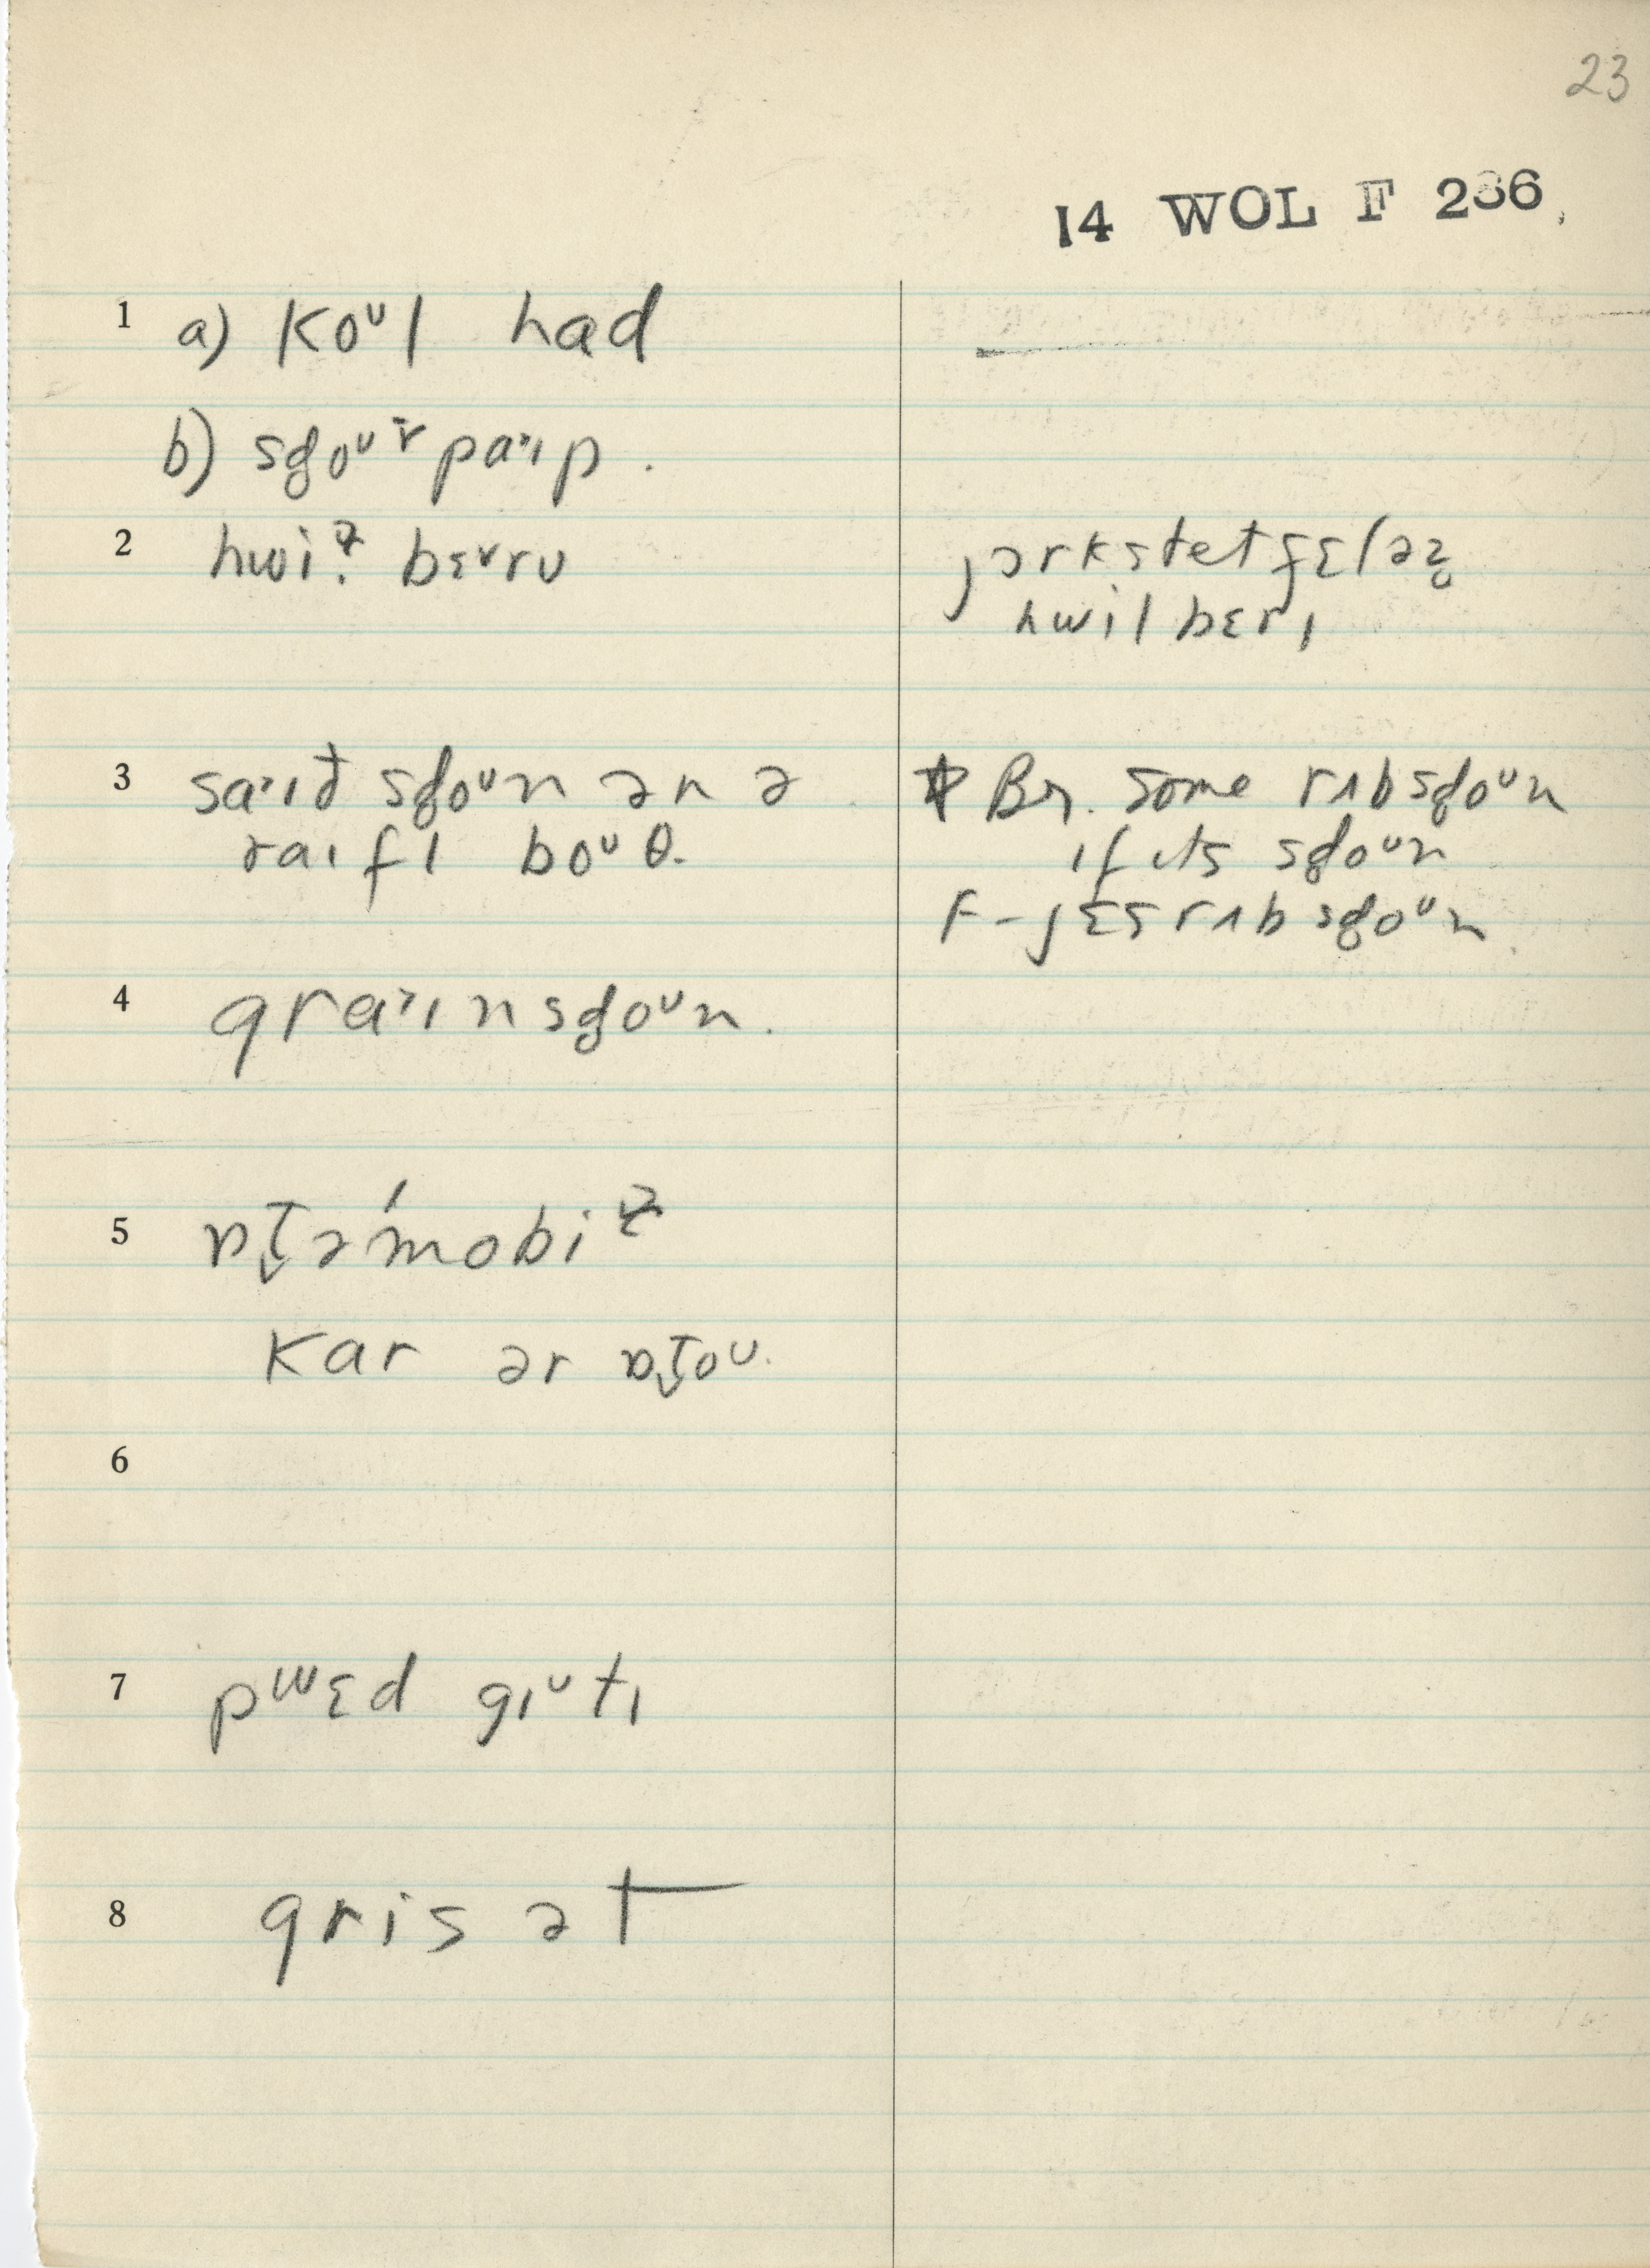 23
14 WOL F 236
1 a) koᵘl had
b) sd̥oᵘ ɪ̈ pa˞ɪp .
2 hwiɫ bɛᵛrʊ
jɔrkstet fɛləz̥
hwil bɛrɪ
3 sa˞ɪd sd̥oᵘn ən ə
raɪfl boᵘθ.
Br. some rʌb sd̥oᵘn
if its sd̥oᵘn
F - jɛs rʌb sd̥oᵘn
4 gra˞ɪn sd̥oᵘn .
5 ɒt̬əˈmobiɫ
kar ər ɒt̬oᵘ.
6
7 pʷɛd gɪᵛtɪ
8 gris ət